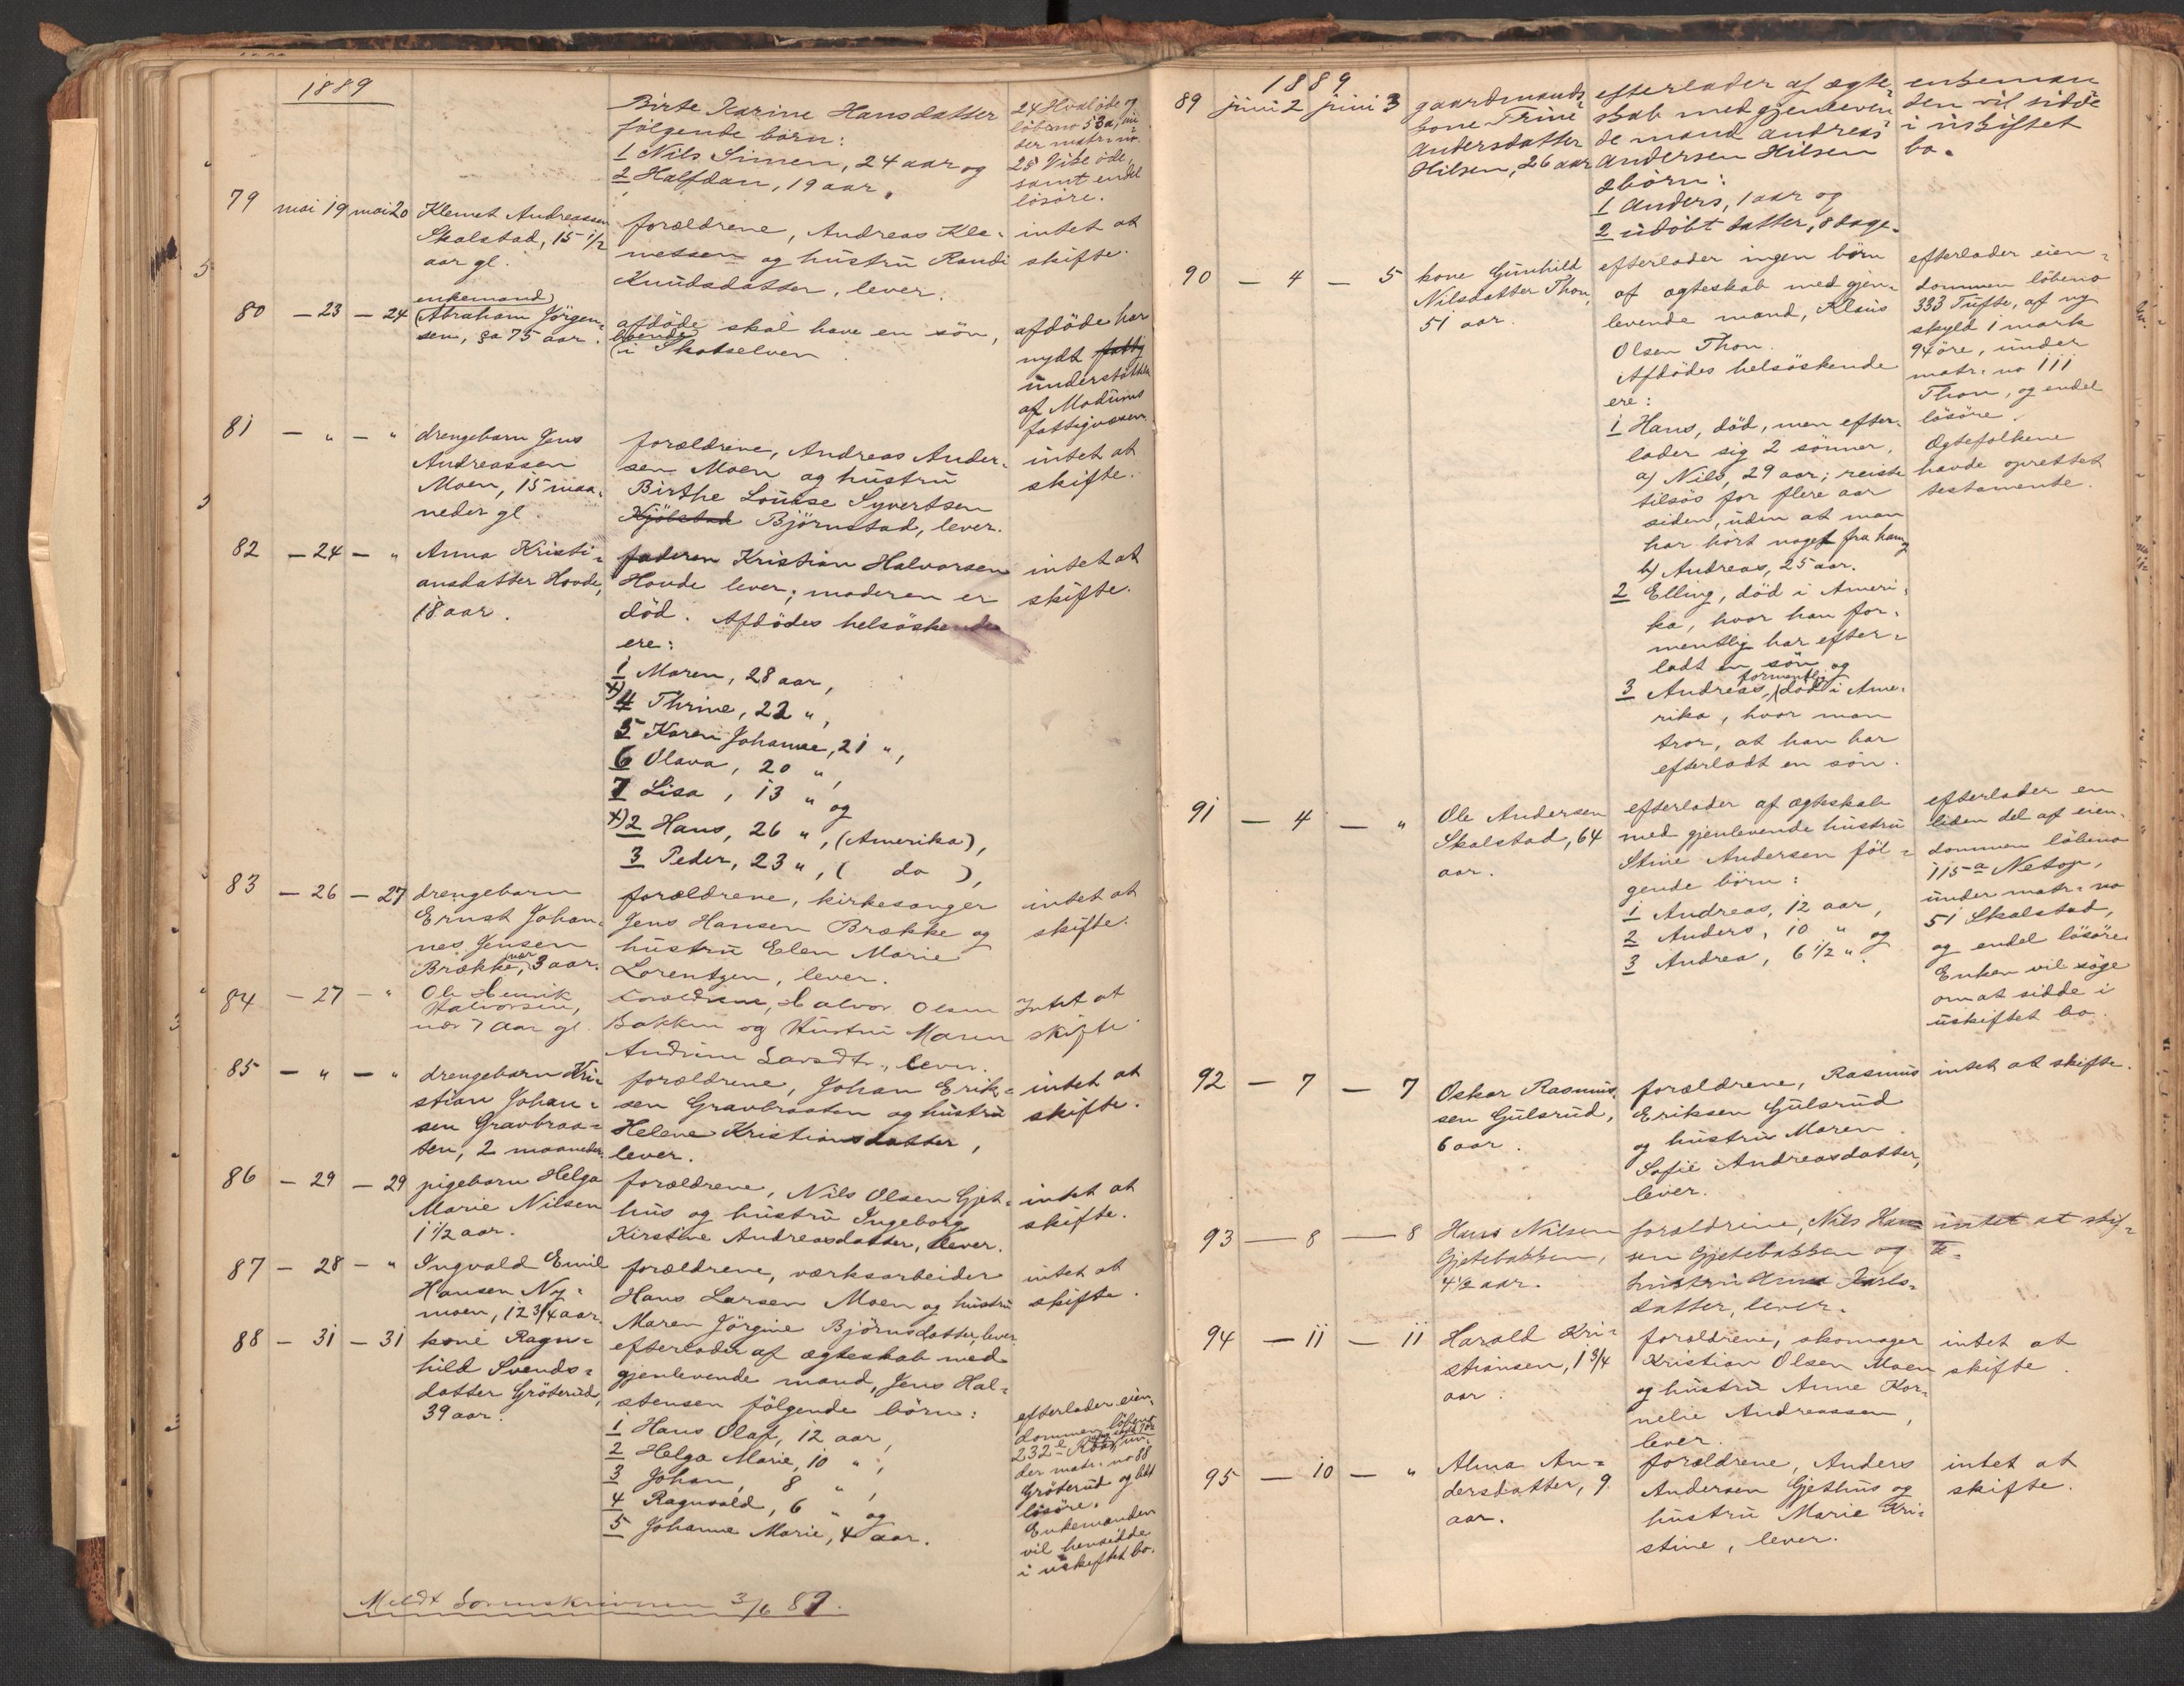 1889
Birte Karine Hansdatter
følgende børn:
1 Nils Simen, 24 aar og
2 Halfdan, 19 aar.
24 Hvaløde og
løbeno 53a, un-
der matr. no
25 Vibe øde,
samt endel
løsøre.
79 mai 19 mai 20
Klemet Andreassen
Skalstad, 15 1/2
aar gl.
forældrene, Andreas Kle-
metsen og hustru Randi
Knudsdatter, lever.
intet at
skifte.
80 - 23 - 24
enkemand
Abraham Jørgen-
sen, ca 75 aar.
afdøde skal have en søn,
boende
i Skotselven.
afdøde har
nydt fattig
understøttelse
af Modums
fattigvæsen.
81 - " - "
drengebarn Jens
Andreassen
Moen, 15 maa-
neder gl.
forældrene, Andreas Ander-
sen Moen og hustru
Birthe Louise Syvertsen
Kjølstad Bjørnstad, lever.
intet at
skifte.
82 - 24 - "
Anna Kristi-
ansdatter Hovde,
18 aar.
faderen Kristian Halvorsen
Hovde lever; moderen er
død. Afdødes helsøskende
ere:
1 Maren, 28 aar,
x) 4 Thrine, 22 ",
5 Karen Johanne, 21 ",
6 Olava, 20 ",
7 Lisa, 13 " og
x) 2 Hans, 26 ", (Amerika),
3 Peder, 23 ", ( do ),
intet at
skifte.
83 - 26 - 27
drengebarn
Ernst Johan-
nes Jensen
Brække, nær 3 aar.
forældrene, kirkesanger
Jens Hansen Brække og
hustru Elen Marie
Lorentzen, lever.
intet at
skifte.
84 - 27 - "
Ole Henrik
Halvorsen,
nær 7 Aar gl.
Forældrene, Halvor Olsen
Bakken og Hustru Maren
Andrine Larsdtr., lever.
Intet at
skifte
85 - " - "
drengebarn Kri-
stian Johan-
sen Gravbraa-
ten, 2 maaneder.
forældrene, Johan Erik-
sen Gravbraaten og hustru
Helene Kristiansdatter,
lever.
intet at
skifte.
86 - 29 - 29
pigebarn Helga
Marie Nilsen
1 1/2 aar.
forældrene, Nils Olsen Gjet-
hus og hustru Ingeborg
Kirstine Andreasdatter, lever.
intet at
skifte.
87 - 28 - "
Ingvald Emil
Hansen Ny-
moen, 12 3/4 aar.
forældrene, værksarbeider
Hans Larsen Moen og hustru
Maren Jørgine Bjørnsdatter, lever.
intet at
skifte.
88 - 31 - 31
kone Ragn-
hild Svends-
datter Grøterud,
39 aar.
efterlader af ægteskab med
gjenlevende mand, Jens Hal-
stensen følgende børn:
1 Hans Olaf, 12 aar,
2 Helga Marie, 10 ",
3 Johan, 8 ",
4 Ragnvald, 6 " og
5 Johanne Marie, 4 aar.
efterlader eien-
dommen løbeno
232e un-
der matr. no 88
Grøterud og lidt
løsøre.
Enkemanden
vil hensidde
i uskiftet bo.
Meldt Sorenskriveren 3/6 89.
1889
89 juni 2 juni 3
gaardmands-
kone Trine
Andersdatter
Hilsen, 26 aar
efterlader af ægte-
skab med gjenleven-
de mand Andreas
Andersen Hilsen
2 børn:
1 Anders, 1 aar og
2 udøbt datter, 8 dage.
enkeman
den vil sidde
i uskiftet
bo.
90 - 4 - 5
kone Gunhild
Nilsdatter Thon,
51 aar.
efterlader ingen børn
af ægteskab med gjen-
levende mand, Klaus
Olsen Thon.
Afdødes helsøskende
ere:
1 Hans, død, men efter-
lader sig 2 sønner,
a) Nils, 29 aar; reiste
tilsøs for flere aar
siden, uden at man
har hørt noget fra ham og
b) Andreas, 25 aar.
2 Elling, død i Ameri-
ka, hvor han for-
mentlig har efter-
ladt en søn og
3 Andreas, formentlig død i Ame-
rika, hvor man
tror, at han har
efterladt en søn.
efterlader eien-
dommen løbeno
333 Tufte, af ny
skyld 1 mark
94 øre, under
matr. no 111
Thon, og endel
løsøre.
Ægtefolkene
havde oprettet
testamente.
91 - 4 - "
Ole Andersen
Skalstad, 64
aar.
efterlader af ægteskab
med gjenlevende hustru
Stine Andersen føl-
gende børn:
1 Andreas, 12 aar,
2 Anders, 10 " og
3 Andrea, 6 1/2 ".
efterlader en
liden del af eien-
dommen løbeno
115a Netop,
under matr. no
51 Skalstad,
og endel løsøre.
Enken vil søge
om at sidde i
uskiftet bo.
92 - 7 - 7
Oskar Rasmus-
sen Gulsrud,
6 aar.
forældrene, Rasmus
Eriksen Gulsrud
og hustru Maren
Sofie Andreasdatter,
lever.
intet at skifte.
93 - 8 - 8
Hans Nilsen
Gjetebakken,
4 1/2 aar.
forældrene, Nils Han-
sen Gjetebakken og
hustru Anna Karls-
datter, lever.
intet at skif-
te.
94 - 11 - 11
Harald Kri-
stiansen, 1 3/4
aar.
forældrene, skomager
Kristian Olsen Moen
og hustru Anne Kor-
nelie Andreassen,
lever.
intet at
skifte.
95 - 10 - "
Alma An-
dersdatter, 9
aar.
forældrene, Anders
Andersen Gjethus og
hustru Marie Kri-
stine, lever.
intet at
skifte.